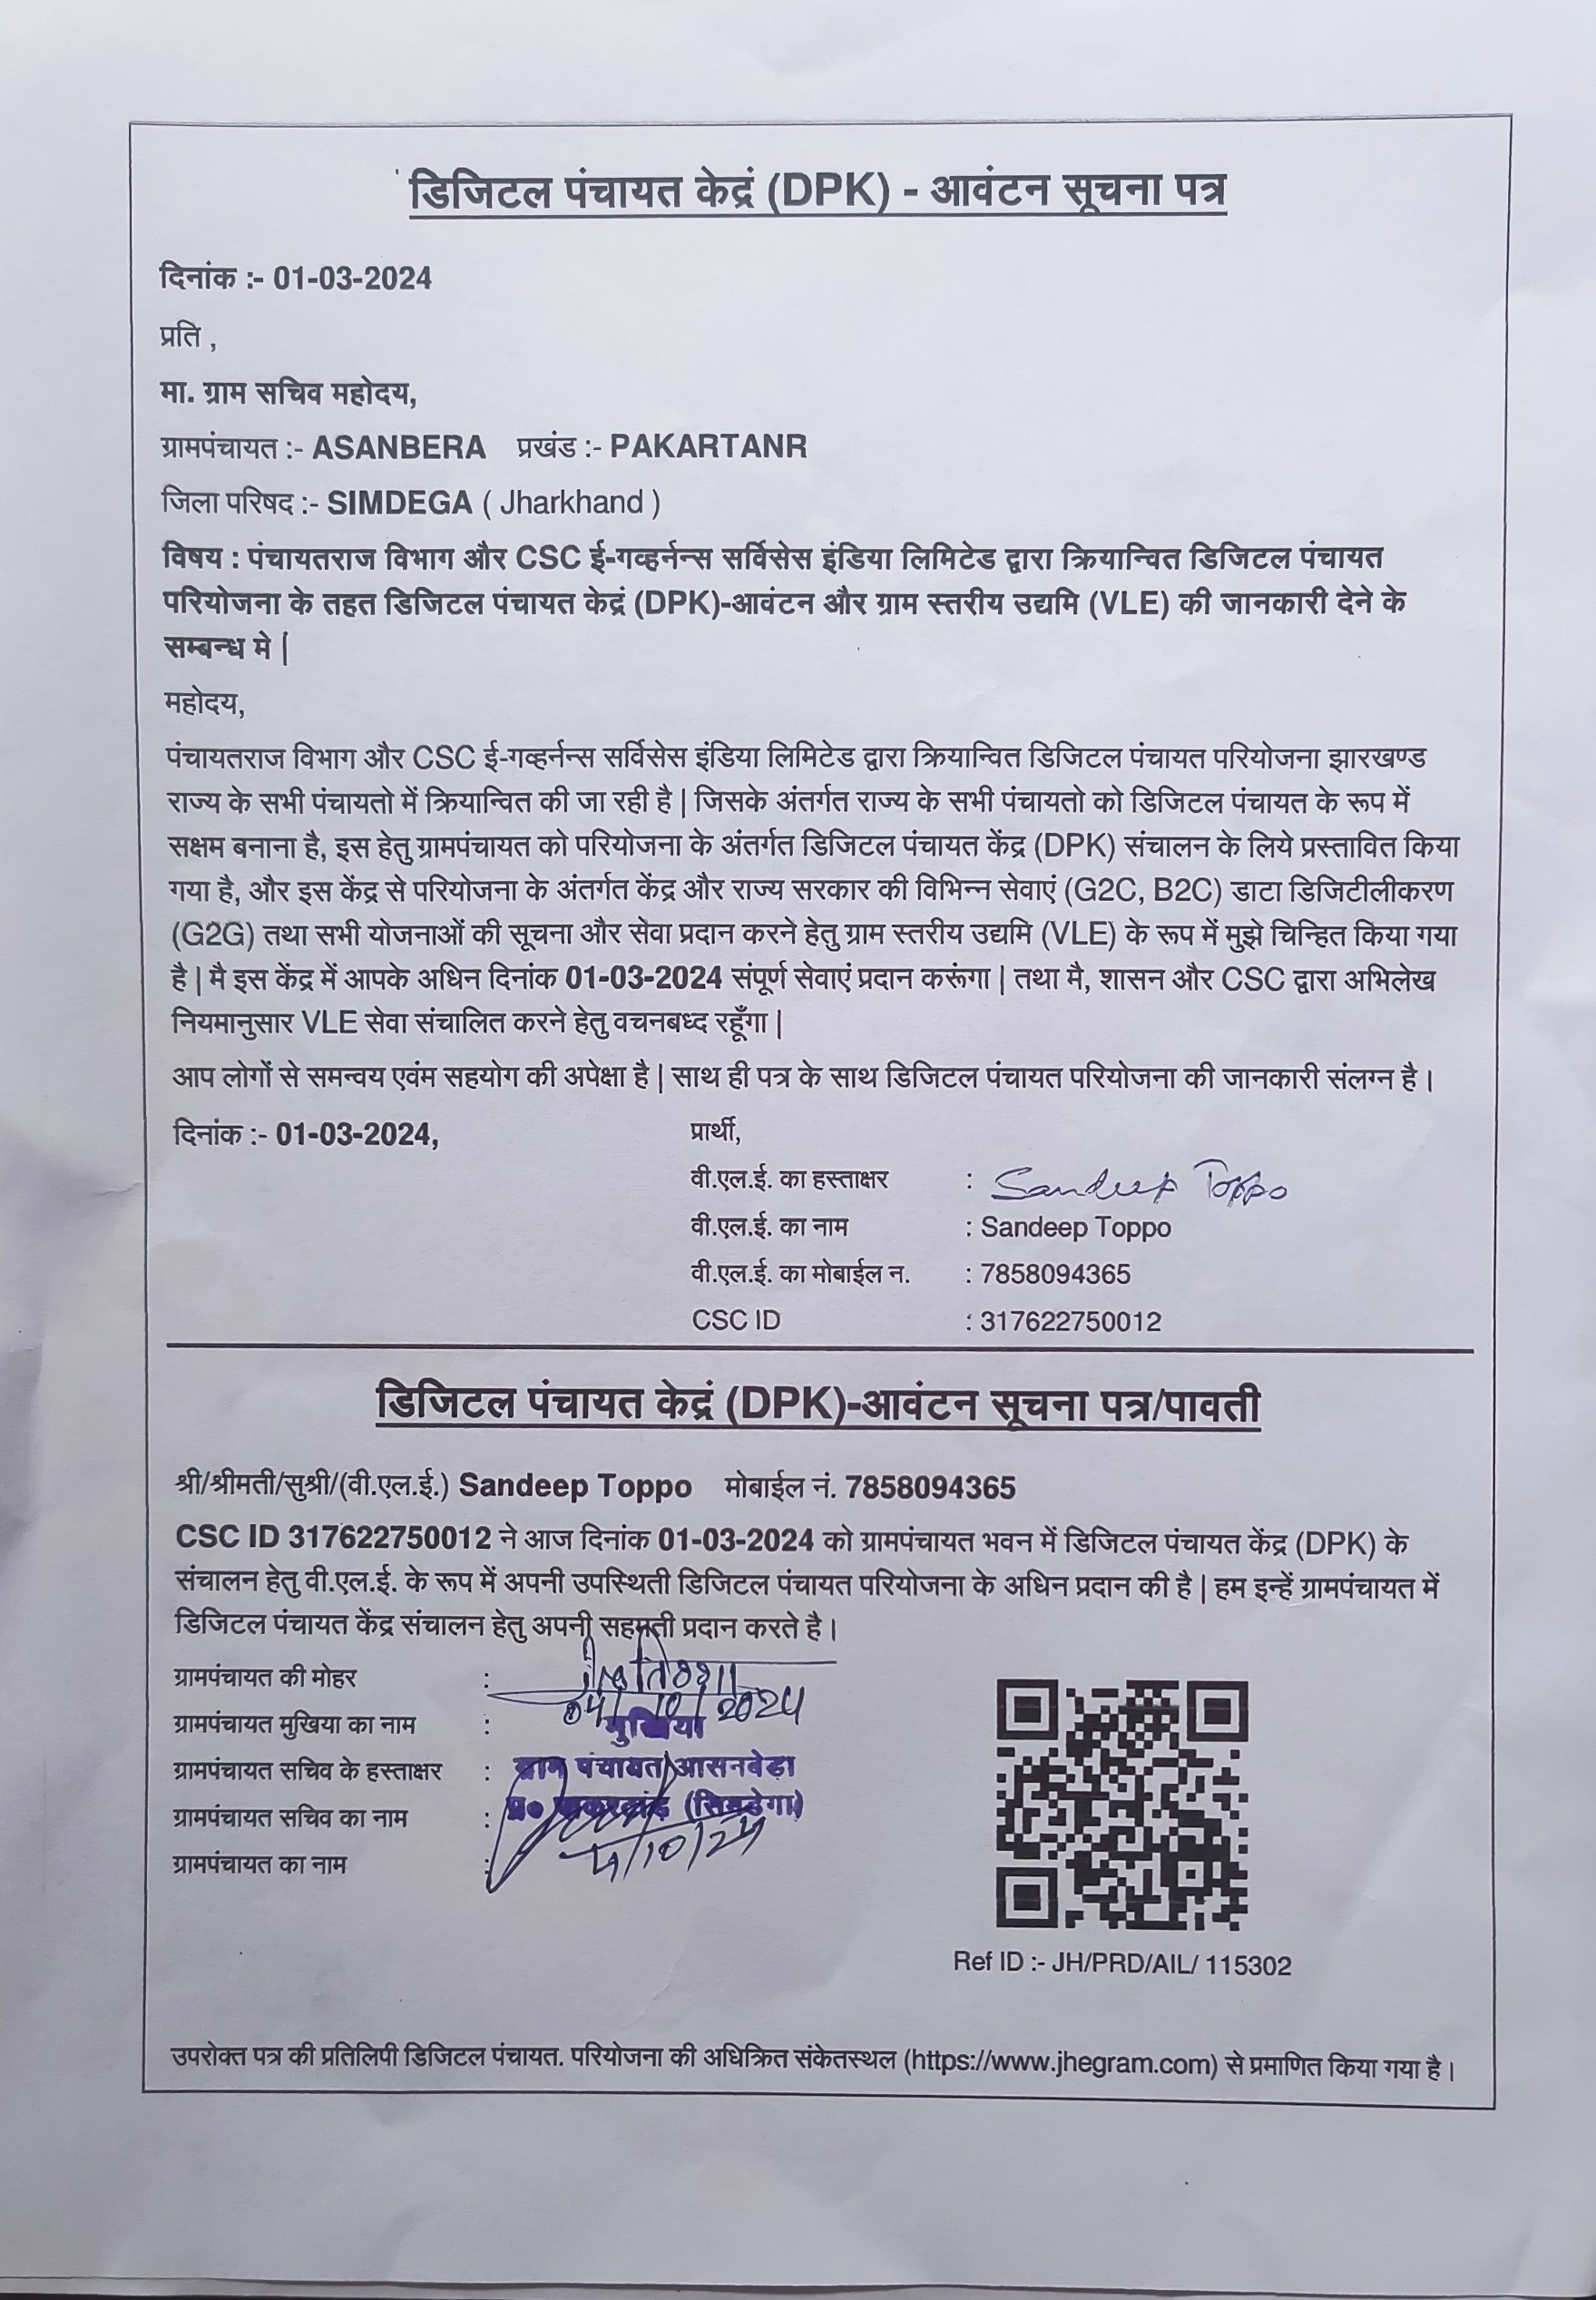 डिजिटल पंचायत केद्रं (DPK) - आवंटन सूचना पत्र
दिनांक :- 01-03-2024
प्रति ,
मा. ग्राम सचिव महोदय,
ग्रामपंचायत :- ASANBERA प्रखंड :- PAKARTANR
जिला परिषद :- SIMDEGA ( Jharkhand )
विषय : पंचायतराज विभाग और CSC ई-गव्हर्नन्स सर्विसेस इंडिया लिमिटेड द्वारा क्रियान्वित डिजिटल पंचायत
परियोजना के तहत डिजिटल पंचायत केद्रं (DPK)-आवंटन और ग्राम स्तरीय उद्यमि (VLE) की जानकारी देने के
सम्बन्ध मे |
महोदय,
पंचायतराज विभाग और CSC ई-गव्हर्नन्स सर्विसेस इंडिया लिमिटेड द्वारा क्रियान्वित डिजिटल पंचायत परियोजना झारखण्ड
राज्य के सभी पंचायतो में क्रियान्वित की जा रही है | जिसके अंतर्गत राज्य के सभी पंचायतो को डिजिटल पंचायत के रूप में
सक्षम बनाना है, इस हेतु ग्रामपंचायत को परियोजना के अंतर्गत डिजिटल पंचायत केंद्र (DPK) संचालन के लिये प्रस्तावित किया
गया है, और इस केंद्र से परियोजना के अंतर्गत केंद्र और राज्य सरकार की विभिन्न सेवाएं (G2C, B2C) डाटा डिजिटीलीकरण
(G2G) तथा सभी योजनाओं की सूचना और सेवा प्रदान करने हेतु ग्राम स्तरीय उद्यमि (VLE) के रूप में मुझे चिन्हित किया गया
है | मै इस केंद्र में आपके अधिन दिनांक 01-03-2024 संपूर्ण सेवाएं प्रदान करूंगा | तथा मै, शासन और CSC द्वारा अभिलेख
नियमानुसार VLE सेवा संचालित करने हेतु वचनबध्द रहूँगा |
आप लोगों से समन्वय एवंम सहयोग की अपेक्षा है | साथ ही पत्र के साथ डिजिटल पंचायत परियोजना की जानकारी संलग्न है ।
दिनांक :- 01-03-2024, प्रार्थी,
वी.एल.ई. का हस्ताक्षर : Sandeep Toppo
वी.एल.ई. का नाम : Sandeep Toppo
वी.एल.ई. का मोबाईल न. : 7858094365
CSC ID : 317622750012
डिजिटल पंचायत केद्रं (DPK)-आवंटन सूचना पत्र/पावती
श्री/श्रीमती/सुश्री/(वी.एल.ई.) Sandeep Toppo मोबाईल नं. 7858094365
CSC ID 317622750012 ने आज दिनांक 01-03-2024 को ग्रामपंचायत भवन में डिजिटल पंचायत केंद्र (DPK) के
संचालन हेतु वी.एल.ई. के रूप में अपनी उपस्थिती डिजिटल पंचायत परियोजना के अधिन प्रदान की है | हम इन्हें ग्रामपंचायत में
डिजिटल पंचायत केंद्र संचालन हेतु अपनी सहमती प्रदान करते है ।
ग्रामपंचायत की मोहर :
04/10/2024
ग्रामपंचायत मुखिया का नाम : मुखिया
ग्रामपंचायत सचिव के हस्ताक्षर : ग्राम पंचायत आसनबेड़ा
ग्रामपंचायत सचिव का नाम : प्र० पाकरटांड़ (सिमडेगा)
4/10/24
ग्रामपंचायत का नाम :
Ref ID :- JH/PRD/AIL/ 115302
उपरोक्त पत्र की प्रतिलिपी डिजिटल पंचायत. परियोजना की अधिक्रित संकेतस्थल (https://www.jhegram.com) से प्रमाणित किया गया है ।